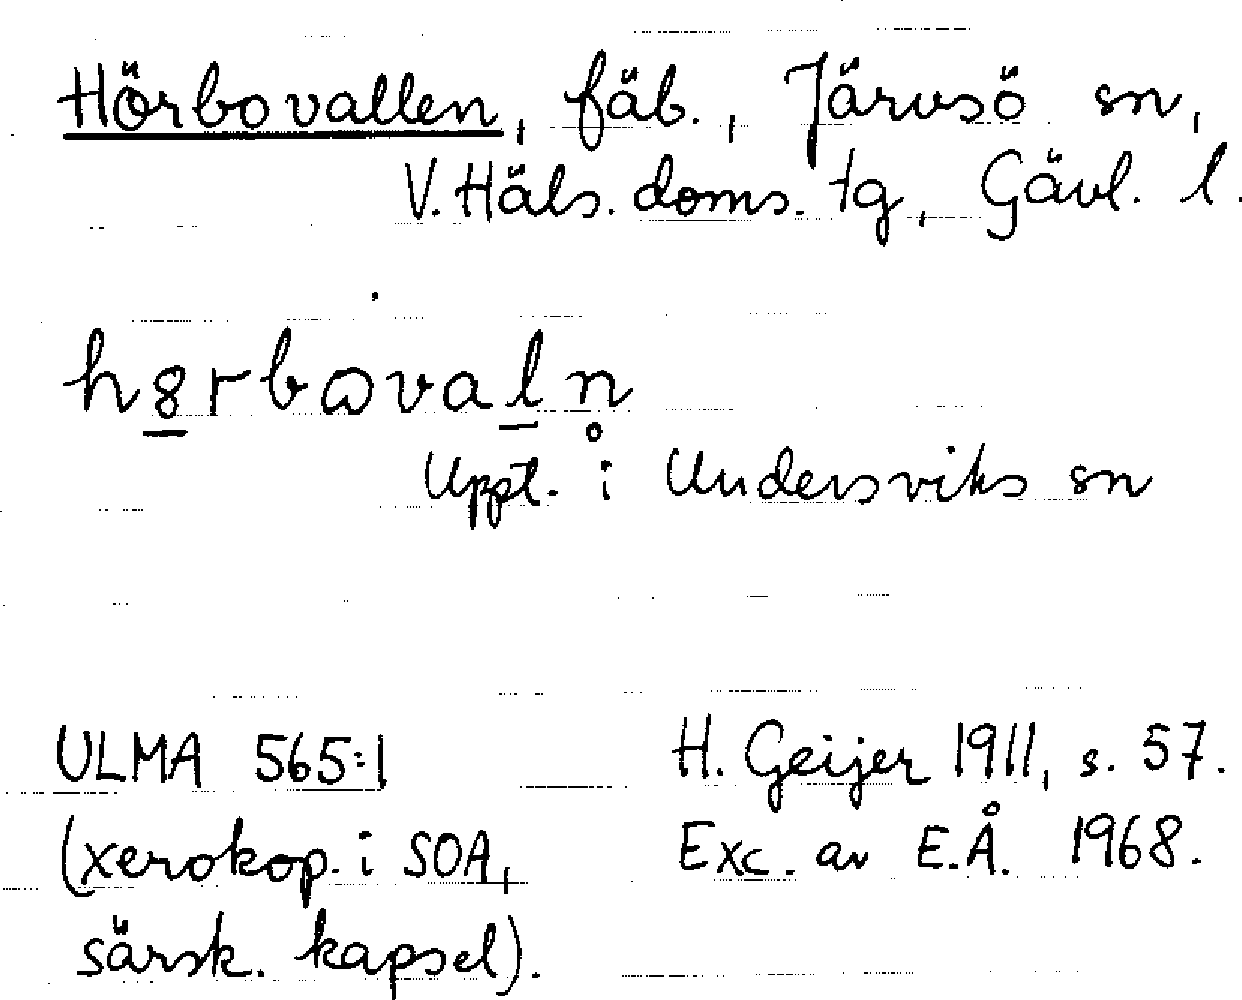 Hörbovallen, fäb., Järvsö sn,
V. Häls. doms. tg, Gävl. l.
h8̲rbɷval̲n̥
Uppt. i Undersviks sn
ULMA 565:1
(xerokop. i SOA,
särsk. kapsel).
H. Geijer 1911, s. 57.
Exc. av E.Å. 1968.